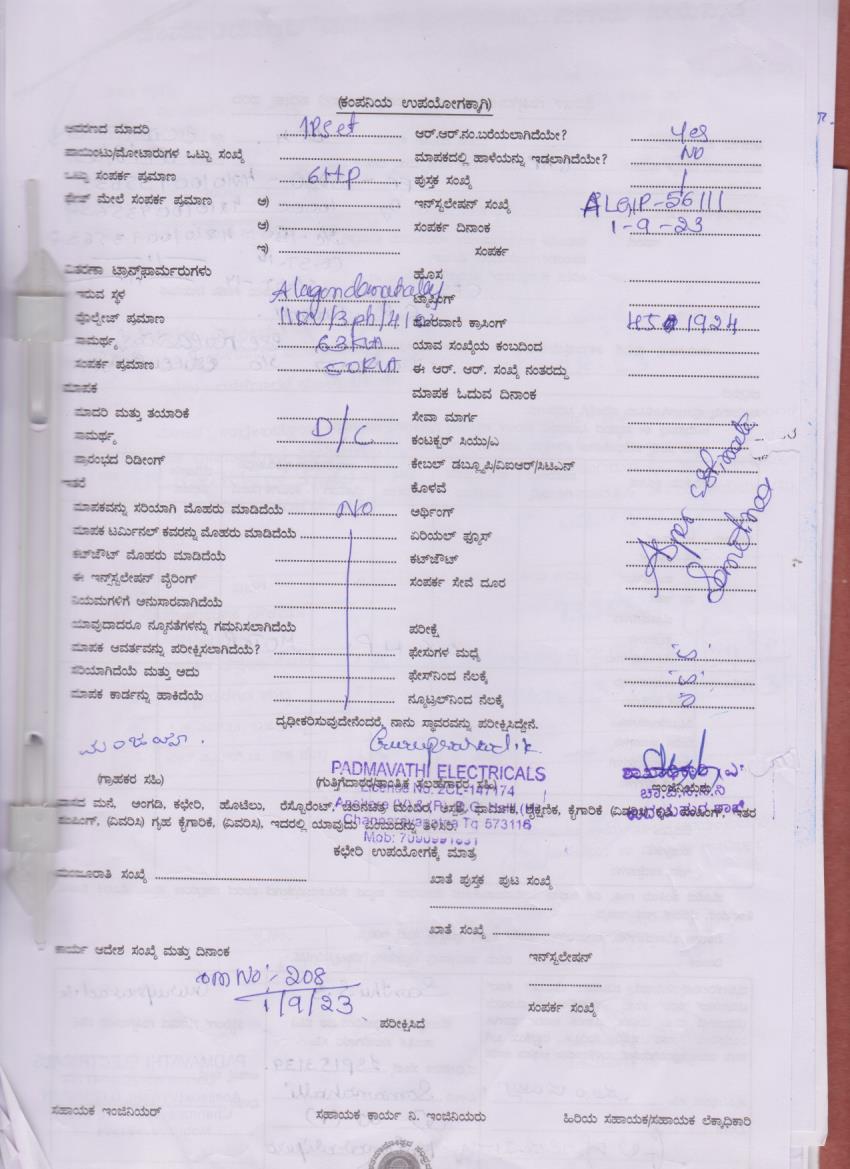 (ಕಂಪನಿಯ ಉಪಯೋಗಕ್ಕಾಗಿ)
ಆವರಣದ ಮಾದರಿ IPset ಆರ್.ಆರ್.ನಂ.ಬರೆಯಲಾಗಿದೆಯೇ? Yes
ಪಾಯಿಂಟು/ಮೋಟಾರುಗಳ ಒಟ್ಟು ಸಂಖ್ಯೆ ಮಾಪಕದಲ್ಲಿ ಹಾಳೆಯನ್ನು ಇಡಲಾಗಿದೆಯೇ? NO
ಒಟ್ಟು ಸಂಪರ್ಕ ಪ್ರಮಾಣ 6HP ಪುಸ್ತಕ ಸಂಖ್ಯೆ
ಫೇಸ್ ಮೇಲೆ ಸಂಪರ್ಕ ಪ್ರಮಾಣ ಅ) ಇನ್‌ಸ್ಟಲೇಷನ್ ಸಂಖ್ಯೆ ALGIP-56111
ಆ) ಸಂಪರ್ಕ ದಿನಾಂಕ 1-9-23
ಇ) ಸಂಪರ್ಕ
ವಿತರಣಾ ಟ್ರಾನ್ಸ್‌ಫಾರ್ಮರುಗಳು ಹೊಸ
ಇರುವ ಸ್ಥಳ Alagondanahalay ಟ್ಯಾಪಿಂಗ್
ವೋಲ್ಟೇಜ್ ಪ್ರಮಾಣ 11KV/3ph/ ದೂರವಾಣಿ ಕ್ರಾಸಿಂಗ್ 1924
ಸಾಮರ್ಥ್ಯ 63KVA ಯಾವ ಸಂಖ್ಯೆಯ ಕಂಬದಿಂದ
ಸಂಪರ್ಕ ಪ್ರಮಾಣ 50KVA ಈ ಆರ್. ಆರ್. ಸಂಖ್ಯೆ ನಂತರದ್ದು
ಮಾಪಕ ಮಾಪಕ ಓದುವ ದಿನಾಂಕ
ಮಾದರಿ ಮತ್ತು ತಯಾರಿಕೆ ಸೇವಾ ಮಾರ್ಗ
ಸಾಮರ್ಥ್ಯ D/C ಕಂಟಕ್ಟರ್ ಸಿಯು/ಎ
ಪ್ರಾರಂಭದ ರಿಡೀಂಗ್ ಕೇಬಲ್ ಡಬ್ಲ್ಯೂಪಿ/ವಿಐಆರ್/ಸಿಟಿಎನ್
ಇತರೆ ಕೊಳವೆ
ಮಾಪಕವನ್ನು ಸರಿಯಾಗಿ ಮೊಹರು ಮಾಡಿದೆಯೆ NO ಆರ್ಥಿಂಗ್
ಮಾಪಕ ಟರ್ಮಿನಲ್ ಕವರನ್ನು ಮೊಹರು ಮಾಡಿದೆಯೆ ಏರಿಯಲ್ ಫ್ಯೂಸ್
As per estimate
ಕಟ್‌ಔಟ್ ಮೊಹರು ಮಾಡಿದೆಯೆ ಕಟ್‌ಔಟ್
ಈ ಇನ್ಸ್‌ಸ್ಟಲೇಷನ್ ವೈರಿಂಗ್ ಸಂಪರ್ಕ ಸೇವೆ ದೂರ
ನಿಯಮಗಳಿಗೆ ಅನುಸಾರವಾಗಿದೆಯೆ
ಯಾವುದಾದರೂ ನ್ಯೂನತೆಗಳನ್ನು ಗಮನಿಸಲಾಗಿದೆಯೆ ಪರೀಕ್ಷೆ
ಮಾಪಕ ಆವರ್ತವನ್ನು ಪರೀಕ್ಷಿಸಲಾಗಿದೆಯೆ? ಫೇಸುಗಳ ಮಧ್ಯೆ
ಸರಿಯಾಗಿದೆಯೆ ಮತ್ತು ಅದು ಫೇಸ್‌ನಿಂದ ನೆಲಕ್ಕೆ
ಮಾಪಕ ಕಾರ್ಡನ್ನು ಹಾಕಿದೆಯೆ ನ್ಯೂಟ್ರಲ್‌ನಿಂದ ನೆಲಕ್ಕೆ
ದೃಢೀಕರಿಸುವುದೇನೆಂದರೆ, ನಾನು ಸ್ಥಾವರವನ್ನು ಪರೀಕ್ಷಿಸಿದ್ದೇನೆ.
PADMAVATHI ELECTRICALS
(ಗ್ರಾಹಕರ ಸಹಿ) ಇಂಜಿನಿಯರು
License No. 147174
ವಾಸದ ಮನೆ, ಅಂಗಡಿ, ಕಛೇರಿ, ಹೊಟೆಲು, ರೆಸ್ಟೊರೆಂಟ್, ಶೈಕ್ಷಣಿಕ, ಕೈಗಾರಿಕೆ (ವಿವರಿಸಿ) ಪಂಪಿಂಗ್, ಇತರ
ಪಂಪಿಂಗ್, (ವಿವರಿಸಿ) ಗೃಹ ಕೈಗಾರಿಕೆ, (ವಿವರಿಸಿ), ಇದರಲ್ಲಿ ಯಾವುದು ಎಂಬುದನ್ನು ತಿಳಿಸಿರಿ.
Channarayapatna Tq 573116
ಕಛೇರಿ ಉಪಯೋಗಕ್ಕೆ ಮಾತ್ರ
ಮಂಜೂರಾತಿ ಸಂಖ್ಯೆ ಖಾತೆ ಪುಸ್ತಕ ಪುಟ ಸಂಖ್ಯೆ
ಖಾತೆ ಸಂಖ್ಯೆ
ಕಾರ್ಯ ಆದೇಶ ಸಂಖ್ಯೆ ಮತ್ತು ದಿನಾಂಕ ಇನ್‌ಸ್ಟಲೇಷನ್
OM No:- 208
1/9/23
ಸಂಪರ್ಕ ಸಂಖ್ಯೆ
ಪರೀಕ್ಷಿಸಿದೆ
ಸಹಾಯಕ ಇಂಜಿನಿಯರ್ ಸಹಾಯಕ ಕಾರ್ಯ ನಿ. ಇಂಜಿನಿಯರು ಹಿರಿಯ ಸಹಾಯಕ/ಸಹಾಯಕ ಲೆಕ್ಕಾಧಿಕಾರಿ